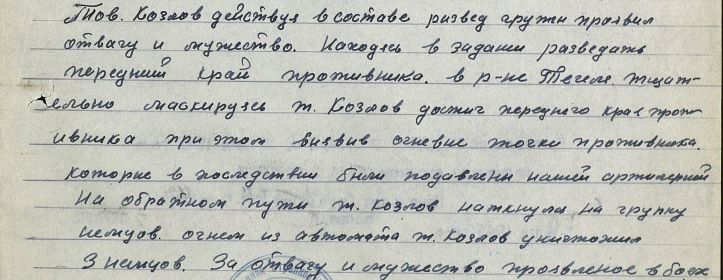 Тов. Козлов действуя в составе развед группы проявил
отвагу и мужество. Находясь в задании разведать
передний край противника. в р-не Тегель тщат-
ельно маскируясь т. Козлов достиг переднего края прот-
ивника при этом выявив огневые точки противника.
которые в последствии были подавлены нашей артилерией
На обратном пути т. Козлов наткнулся на группу
немцов. огнем из автомата т. Козлов уничтожил
3 немцов. За отвагу и мужество проявленое в боях